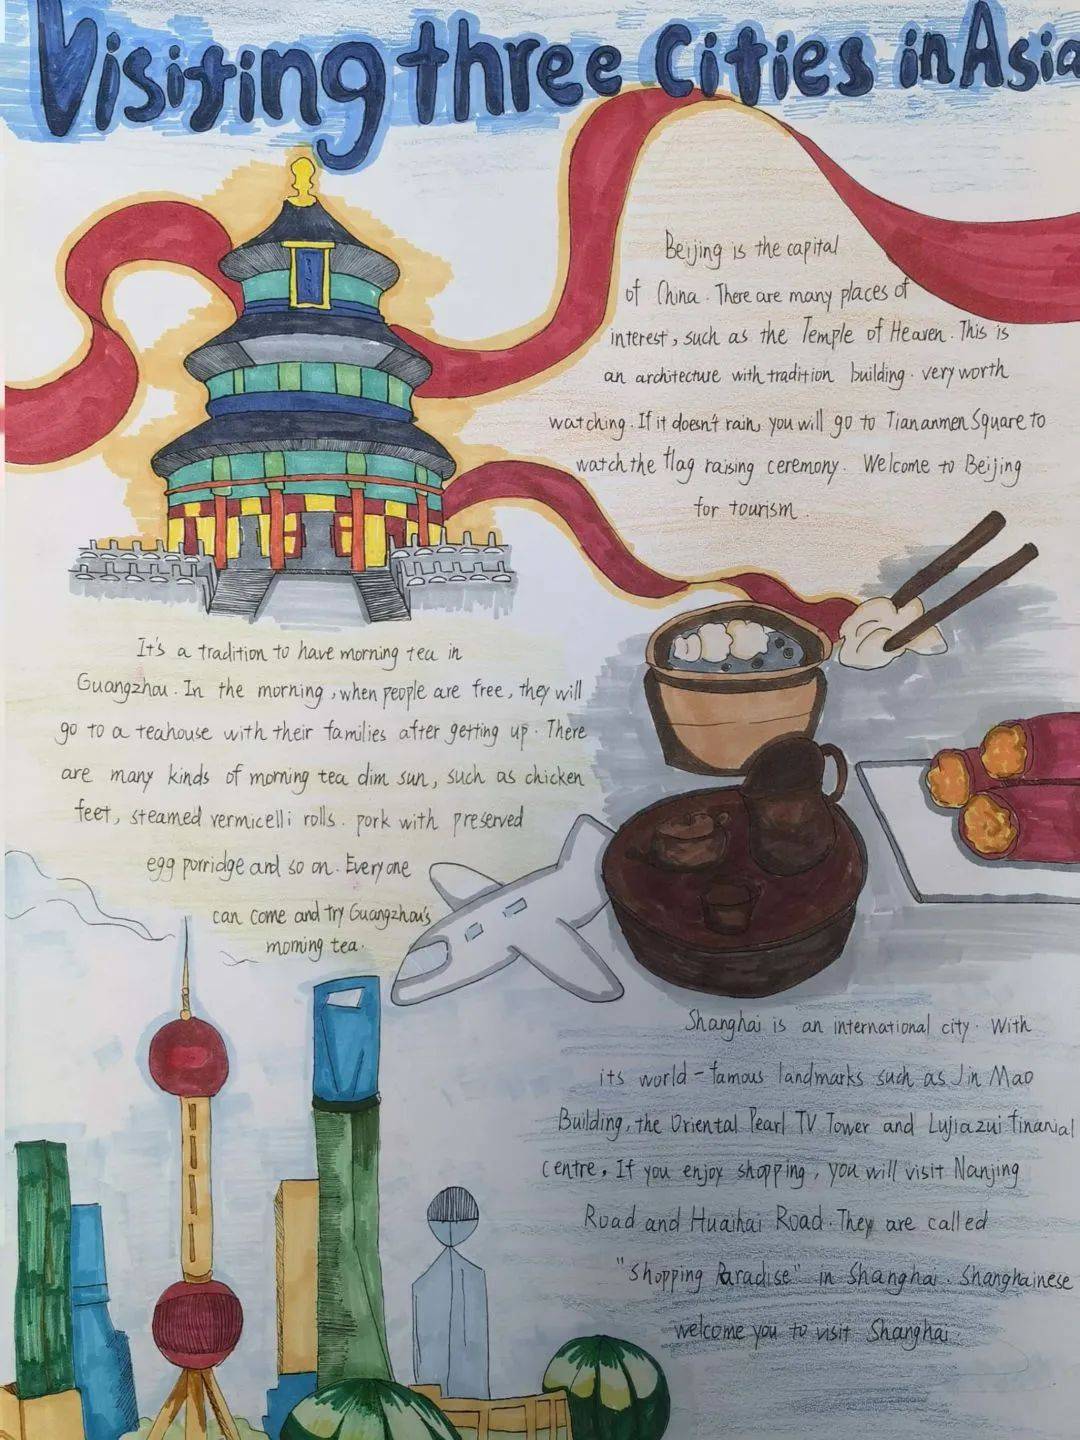 Visiting three Cities in Asia
Beijing is the capital
of China. There are many places of
interest, such as the Temple of Heaven. This is
an architecture with tradition building. very worth
watching. If it doesn't rain, you will go to Tiananmen Square to
watch the flag raising ceremony. Welcome to Beijing
for tourism.
It's a tradition to have morning tea in
Guangzhou. In the morning, when people are free, they will
go to a teahouse with their families after getting up. There
are many kinds of morning tea dim sun, such as chicken
feet, steamed vermicelli rolls. pork with preserved
egg porridge and so on. Everyone
can come and try Guangzhou's
morning tea.
Shanghai is an international city. With
its world-famous landmarks such as Jin Mao
Building, the Oriental Pearl TV Tower and Lujiazui finanial
centre, If you enjoy shopping, you will visit Nanjing
Road and Huaihai Road. They are called
"shopping Paradise" in Shanghai. Shanghainese
welcome you to visit Shanghai.